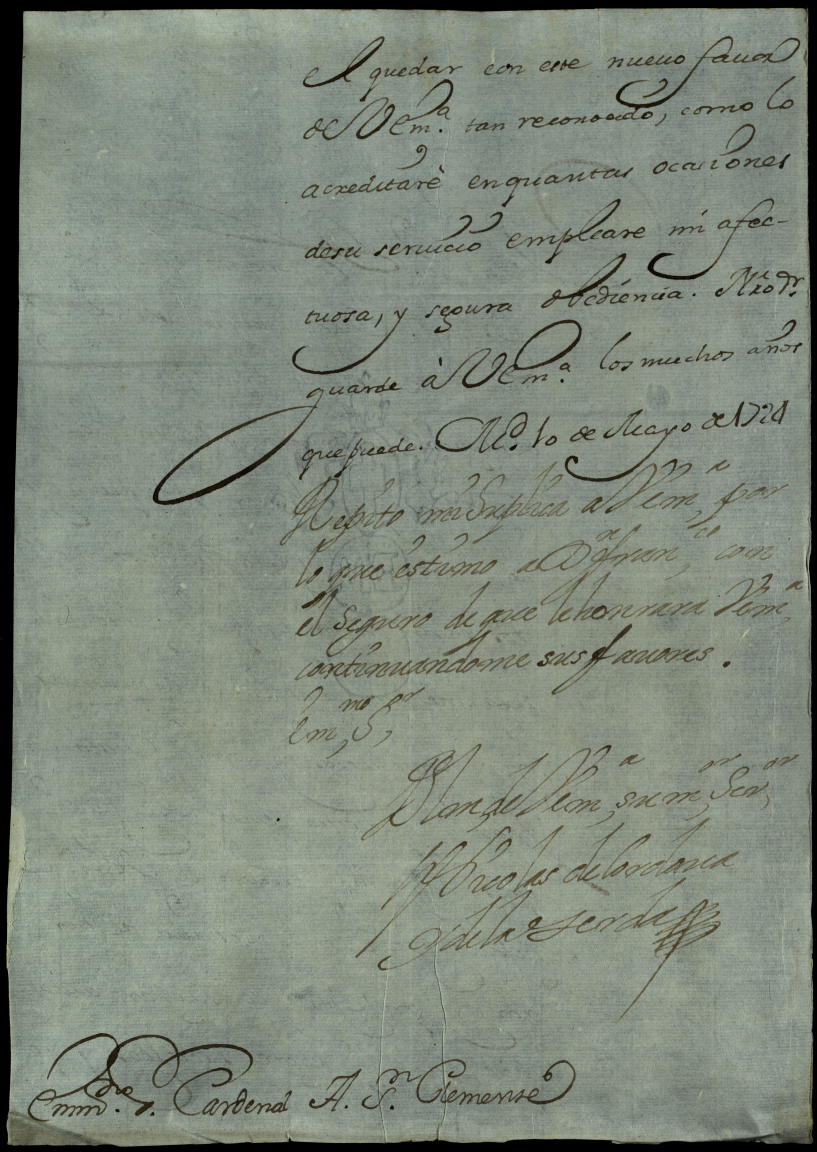 el quedar con este nueuo fauor
de VEm.ª tan reconocido, como lo
acreditarè en quantas ocasiones
desu seruicio empleare mi afec-
tuosa, y segura obediencia. Nrõ Sr.
guarde à VEm.ª los muchos años
que puede. Md. 10 de Mayo de 1721
Repito mi Suplica a VEm,ª por
lo que estimo a Dn fran,co con
el seguro de que le honrara VEm,ª
continuandome sus fauores.
Em,mo S,or
Blm, de VEm,ª su m,or Ser,or
Nicolas de Cordoua
y de la Zerda
Cardenal A. S.n Clemente